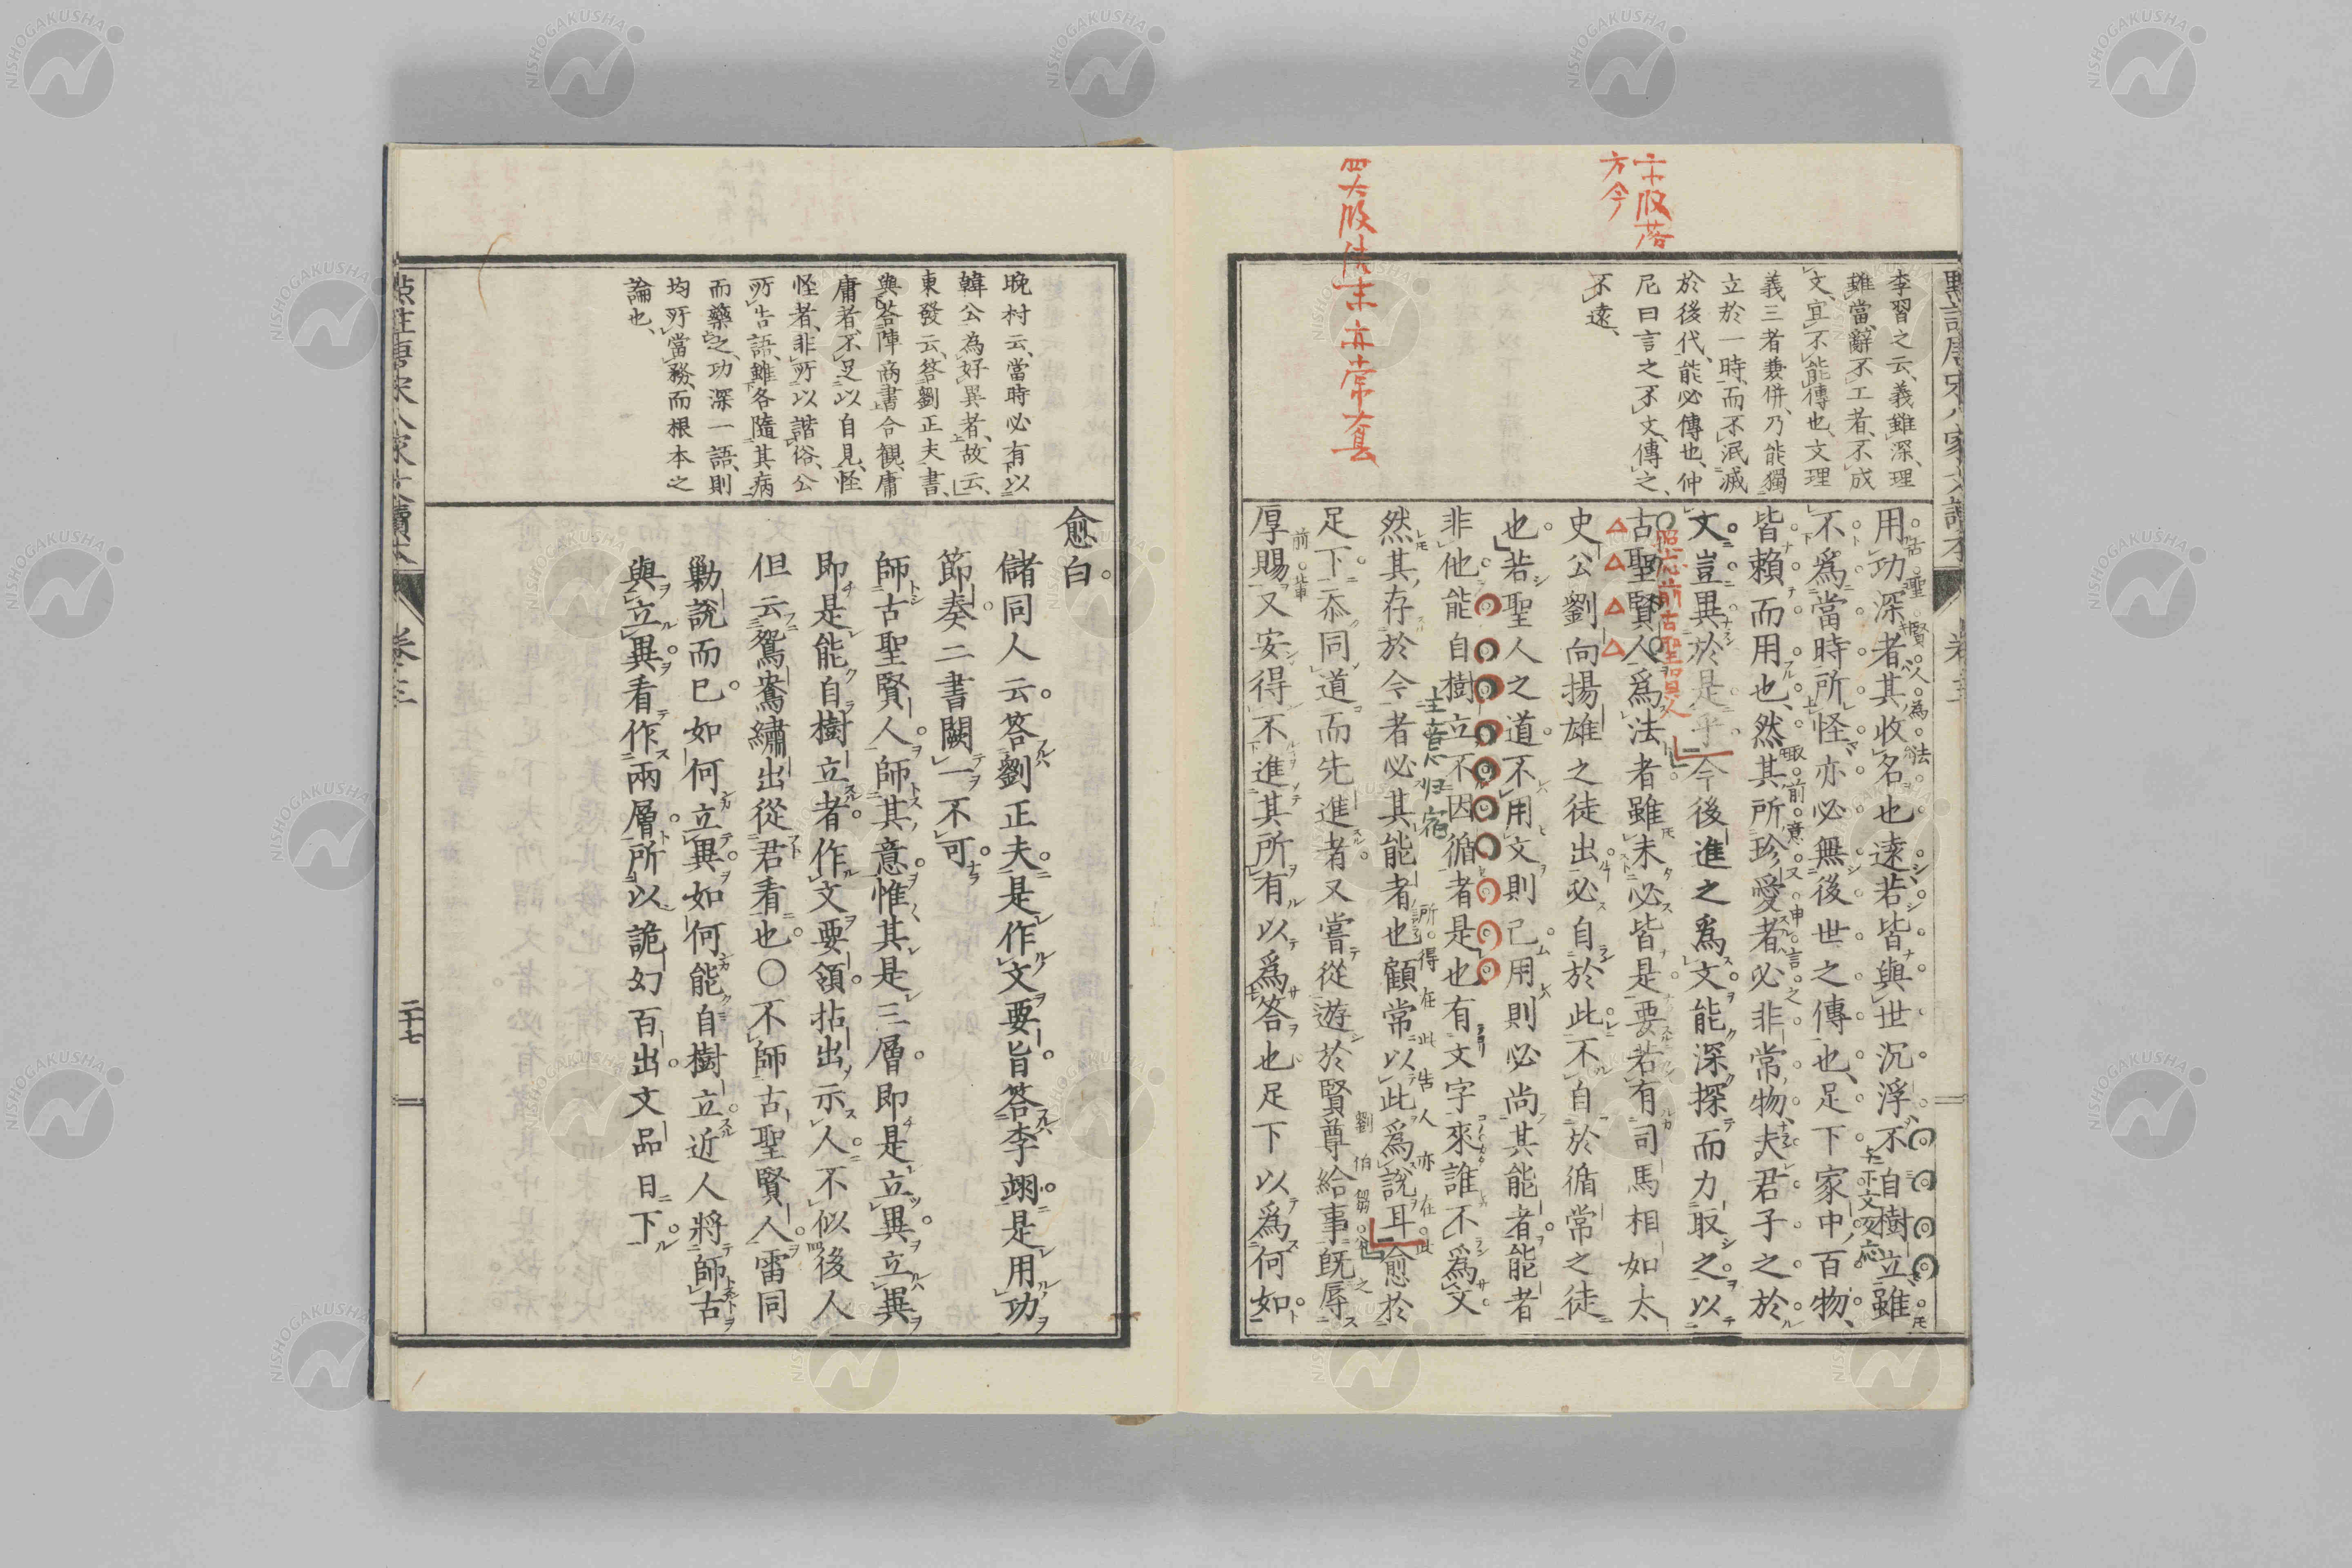 李習之云、義雖深、理
雖當、辭不工者、不成
文、宜不能傳也、文理
義三者兼併、乃能獨
立於一時、而不泯滅
於後代、能必傳也、仲
尼曰言之不文、傳之
不遠、
用功深者其收名也遠若皆與世沉浮不自樹立雖
不爲當時所怪亦必無後世之傳也足下家中百物、
皆賴而用也、然其所珍愛者必非常物、夫君子之於
文豈異於是乎今後進之爲文能深探而力取之以
古聖賢人爲法者雖未必皆是要若有司馬相如太
史公劉向揚雄之徒出必自於此不自於循常之徒
也若聖人之道不用文則已用則必尚其能者能者
非他能自樹立不因循者是也有文字來誰不爲文
然其存於今者必其能者也顧常以此爲說耳愈於
足下忝同道而先進者又嘗從遊於賢尊給事既辱
厚賜又安得不進其所有以爲答也足下以爲何如
卷三
晚村云、當時必有以
韓公爲好異者、故云、
東發云、答劉正夫書、
與答陳商書合觀、庸
庸者、不足以自見、怪
怪者、非所以諧俗、公
所告語、雖各隨其病
而藥之、功深一語、則
均所當務、而根本之
論也、
愈白
儲同人云答劉正夫是作文要旨答李翊是用功
節奏二書闕一不可
師古聖賢人師其意惟其是三層即是立異立異
即是能自樹立者作文要領拈出示人不似後人
但云鴛鴦繡出從君看也〇不師古聖賢人雷同
勦說而已如何立異如何能自樹立近人將師古
與立異看作兩層所以詭幻百出文品日下
卷三
二十七